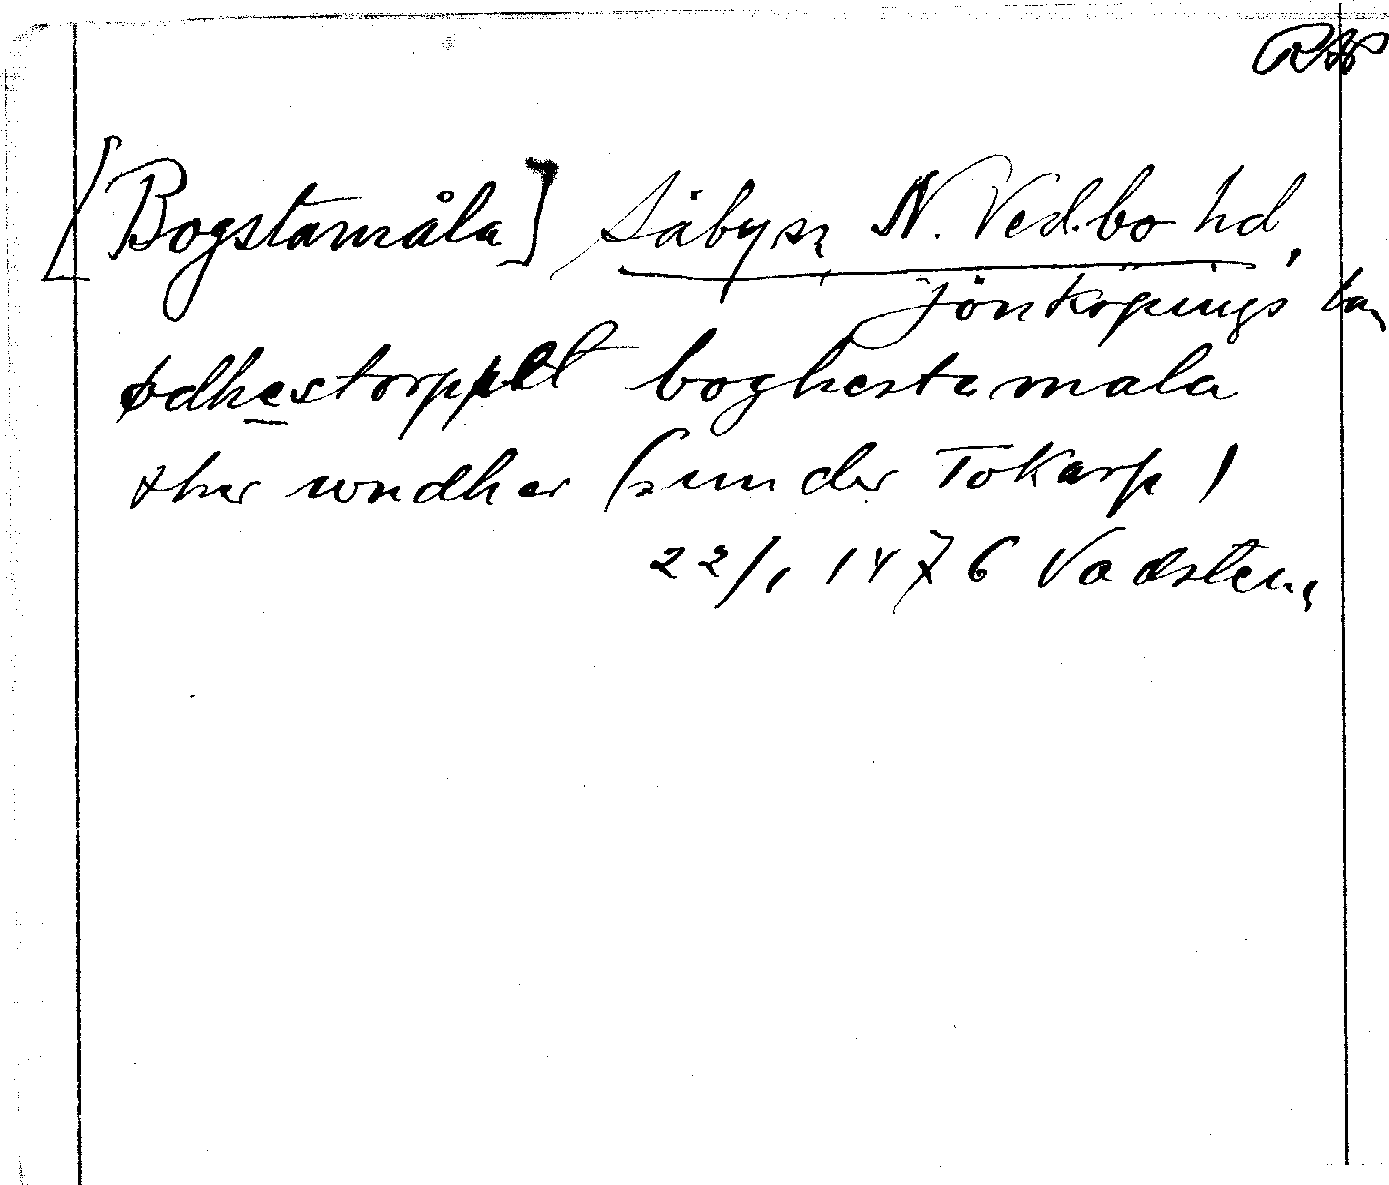 RAP
[Bogstamåla] Säby sn N. Vedbo hd,
Jönköpings län
ødhestorppet boghestamala
ther wndher (: under Tokarp)
22/1 1476 Vadstena